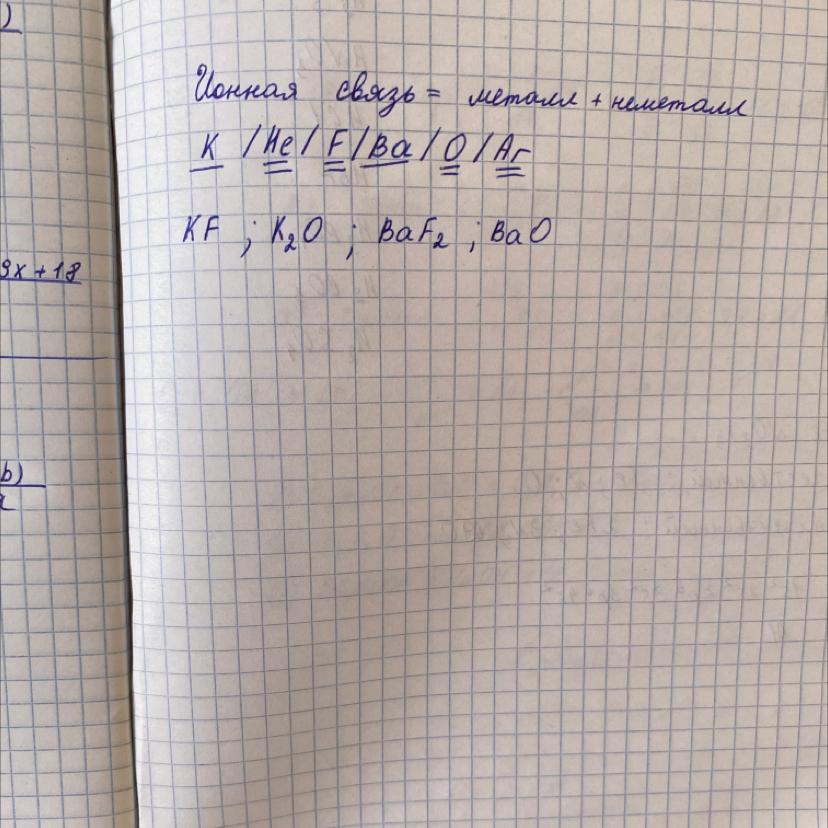 )
Ионная связь = металл + неметалл
K / He / F / Ba / O / Ar
KF ; K₂O ; BaF₂ ; BaO
9x + 18
b)